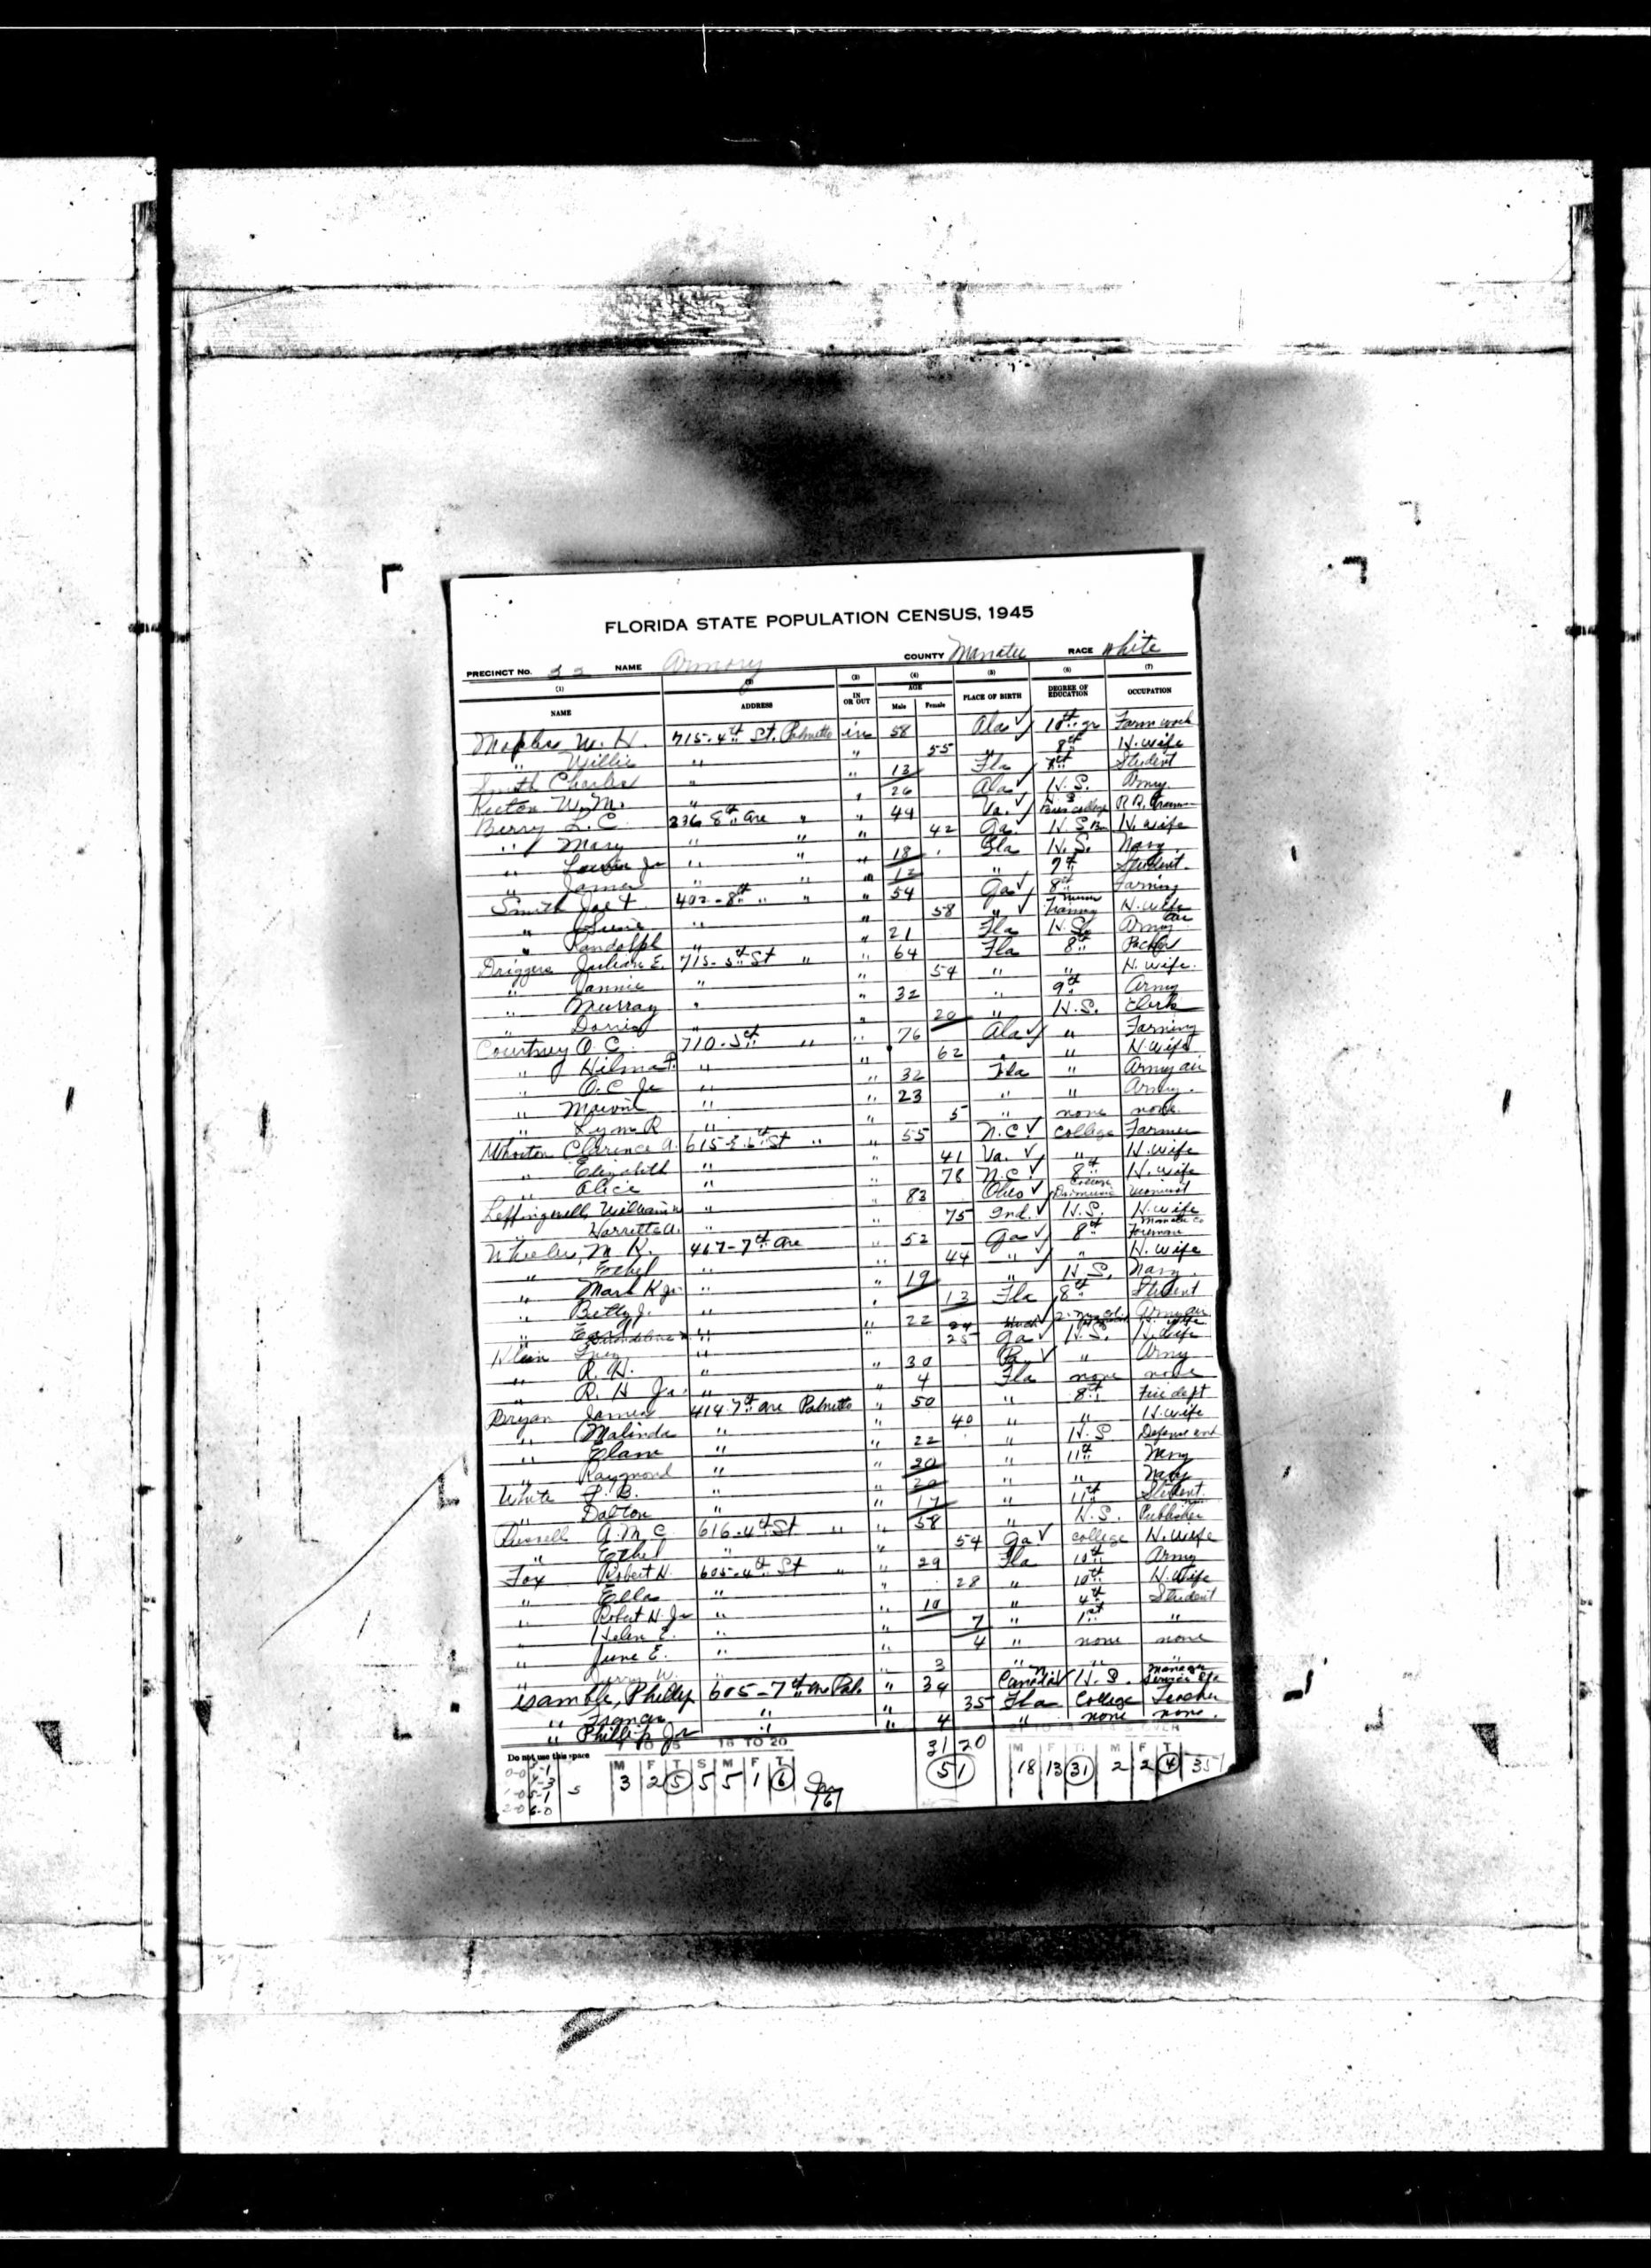 FLORIDA STATE POPULATION CENSUS, 1945
PRECINCT NO. 22 NAME Armory COUNTY Manatee RACE White
(1) (2) (3) (4) (5) (6) (7)
NAME ADDRESS IN OR OUT AGE Male Female PLACE OF BIRTH DEGREE OF EDUCATION OCCUPATION
W. H. 715-4th St. Palmetto in 58 Ala 10th gr Farm work
" Willie " " 55 " 8th H. wife
Smith Charles " " 13 Fla 7th Student
W. M. " " 26 Ala H. S. Army
Berry L. C. 336 8th Ave " " 44 Va. R R
" Mary " " " 42 Ga. H. S. H. wife
" Jr " " " 18 Fla H. S. Navy
" James " " " 12 " 7th Student
Smith 402-8th " " " 54 Ga 8th Farming
" " " 58 " H. wife
" Randolph " " 21 Fla H. S. Army air
Driggers Julian E. 715-5th St " " 64 Fla 8th Packer
" " " 54 " " H. wife
" Murray " " 32 " 9th Army
" Doris " " 20 " H. S. Clerk
Courtney O. C. 710-5th " " 76 Ala " Farming
" " " 62 " " H. wife
" O. C. Jr " " 32 Fla " Army air
" " " 23 " " Army
" R " " 5 " none none
Clarence A. 615- 6th St " " 55 N. C. College Farmer
" Elizabeth " " 41 Va. " H. wife
" Alice " " 78 N. C. 8th H. wife
Leffingwell, William " " 83 Ohio College
" " " 75 Ind. H. S. H. wife
Wheeler, M. K. 407-7th Ave " 52 Ga 8th Manatee Co Foreman
" " " 44 " " H. wife
" Mark K Jr " " 19 " H. S. Navy
" Betty J. " " 13 Fla 8th Student
" " " 22 Army air
Klein " 25 Ga H. S. H. wife
" R. H. " " 30 Pa " Army
" R. H Jr. " " 4 Fla none none
Bryan James 414 7th Ave Palmetto " 50 " 8th Fire dept
" Malinda " " 40 " " H. wife
" " " 22 " H. S Defense
" Raymond " " 20 " 11th Navy
White J. B. " " 20 " " Navy
" Dalton " " 17 " 11th Student
Russell A. M. C. 616-4th St " " 58 " H. S. Publisher
" Ethel " " 54 Ga College H. wife
Fox Robert H. 605-4th St " " 29 Fla 10th Army
" Ella " " 28 " 10th H. wife
" Robert H. Jr " " 10 " 4th Student
" Helen E. " " 7 " 1st "
" June E. " " 4 " none none
" W. " " 3 " " "
Isamble, Phillip 605-7th Ave Pal. " 34 Canada H. S. Manager Service Sta
" Frances " " 35 Fla College Teacher
" Phillip Jr " " 4 " none none
31 20
Do not use this space
M F T S M F T
3 2 5 5 5 1 6
51
M F T M F T
18 13 31 2 2 4 35